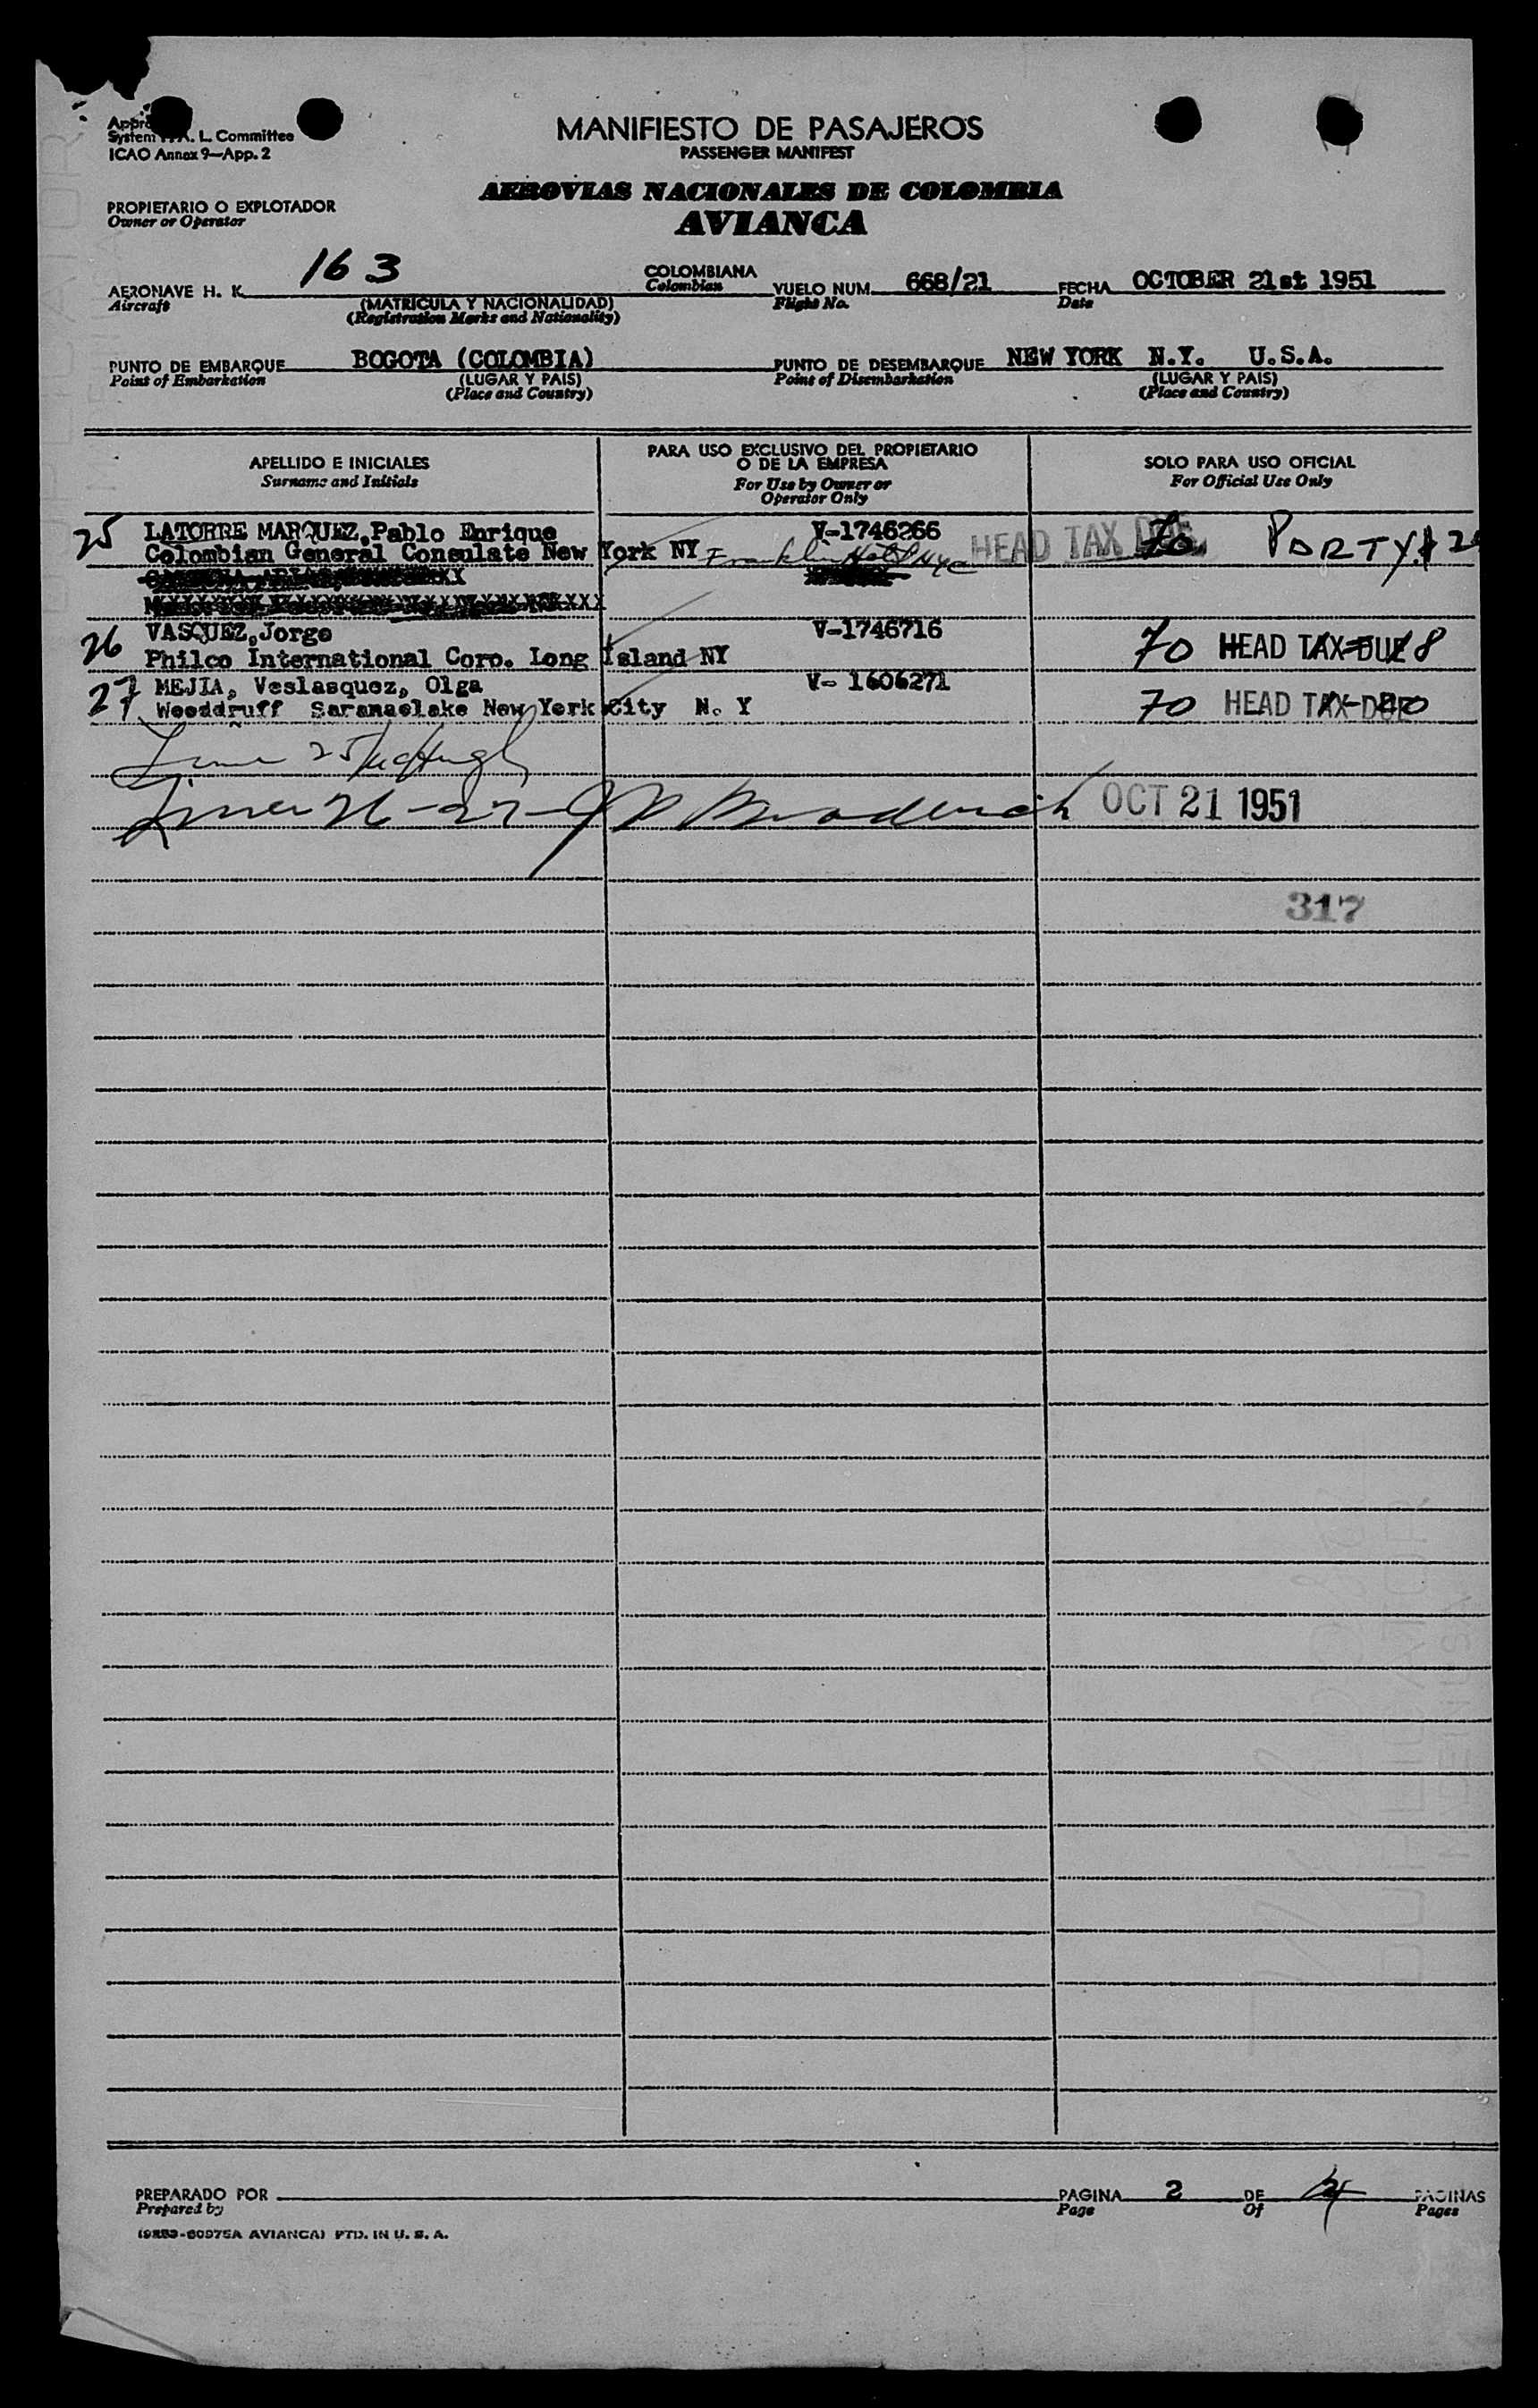 MANIFIESTO DE PASAJEROS
PASSENGER MANIFEST
System L. Committee
ICAO Annex 9—App. 2
AEROVIAS NACIONALES DE COLOMBIA
AVIANCA
PROPIETARIO O EXPLOTADOR
Owner or Operator
AERONAVE H. K. 163 COLOMBIANA VUELO NUM. 668/21 FECHA OCTOBER 21st 1951
Aircraft Colombian Flight No. Date
(MATRICULA Y NACIONALIDAD)
(Registration Marks and Nationality)
PUNTO DE EMBARQUE BOGOTA (COLOMBIA) PUNTO DE DESEMBARQUE NEW YORK N.Y. U.S.A.
Point of Embarkation (LUGAR Y PAIS) Point of Disembarkation (LUGAR Y PAIS)
(Place and Country) (Place and Country)
APELLIDO E INICIALES
Surname and Initials
PARA USO EXCLUSIVO DEL PROPIETARIO
O DE LA EMPRESA
For Use by Owner or
Operator Only
SOLO PARA USO OFICIAL
For Official Use Only
25 LATORRE MARQUEZ,Pablo Enrique V-1746266 HEAD TAX DUE 70 PORTY
Colombian General Consulate New York NY Franklin Hotel NYC
26 VASQUEZ,Jorge V-1746716
Philco International Corp. Long Island NY 70 HEAD TAX DUE 8
27 MEJIA, Veslasquez, Olga V- 1606271
Wooddruff Saranaclake New York City N. Y 70 HEAD TAX DUE
25
26-27 OCT 21 1951
317
PREPARADO POR PAGINA 2 DE PAGINAS
Prepared by Page Of Pages
(9253-60975A AVIANCA) PTD. IN U. S. A.